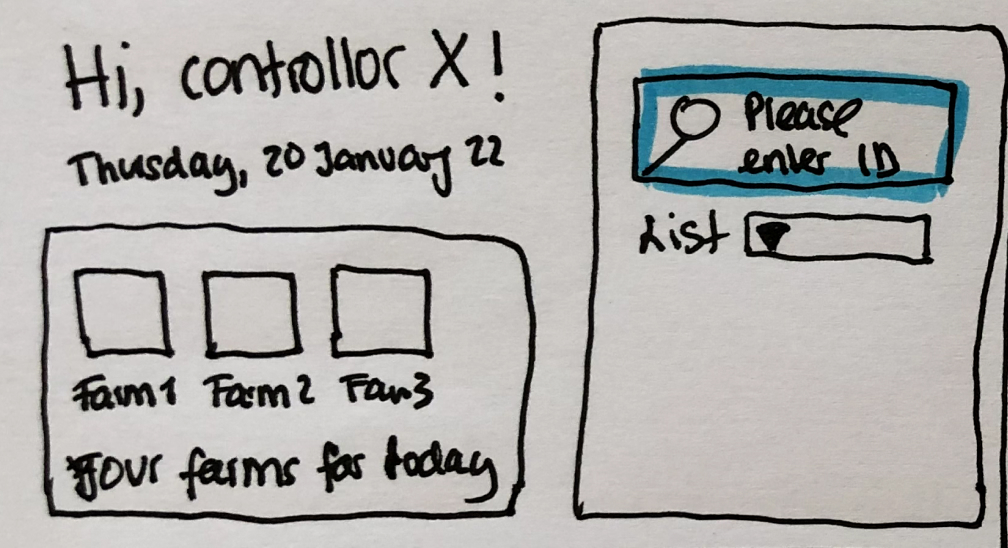 Hi, controllor X!
Thusday, 20 January 22
Farm1 Farm2 Far3
Your farms for today
Please
enter ID
List